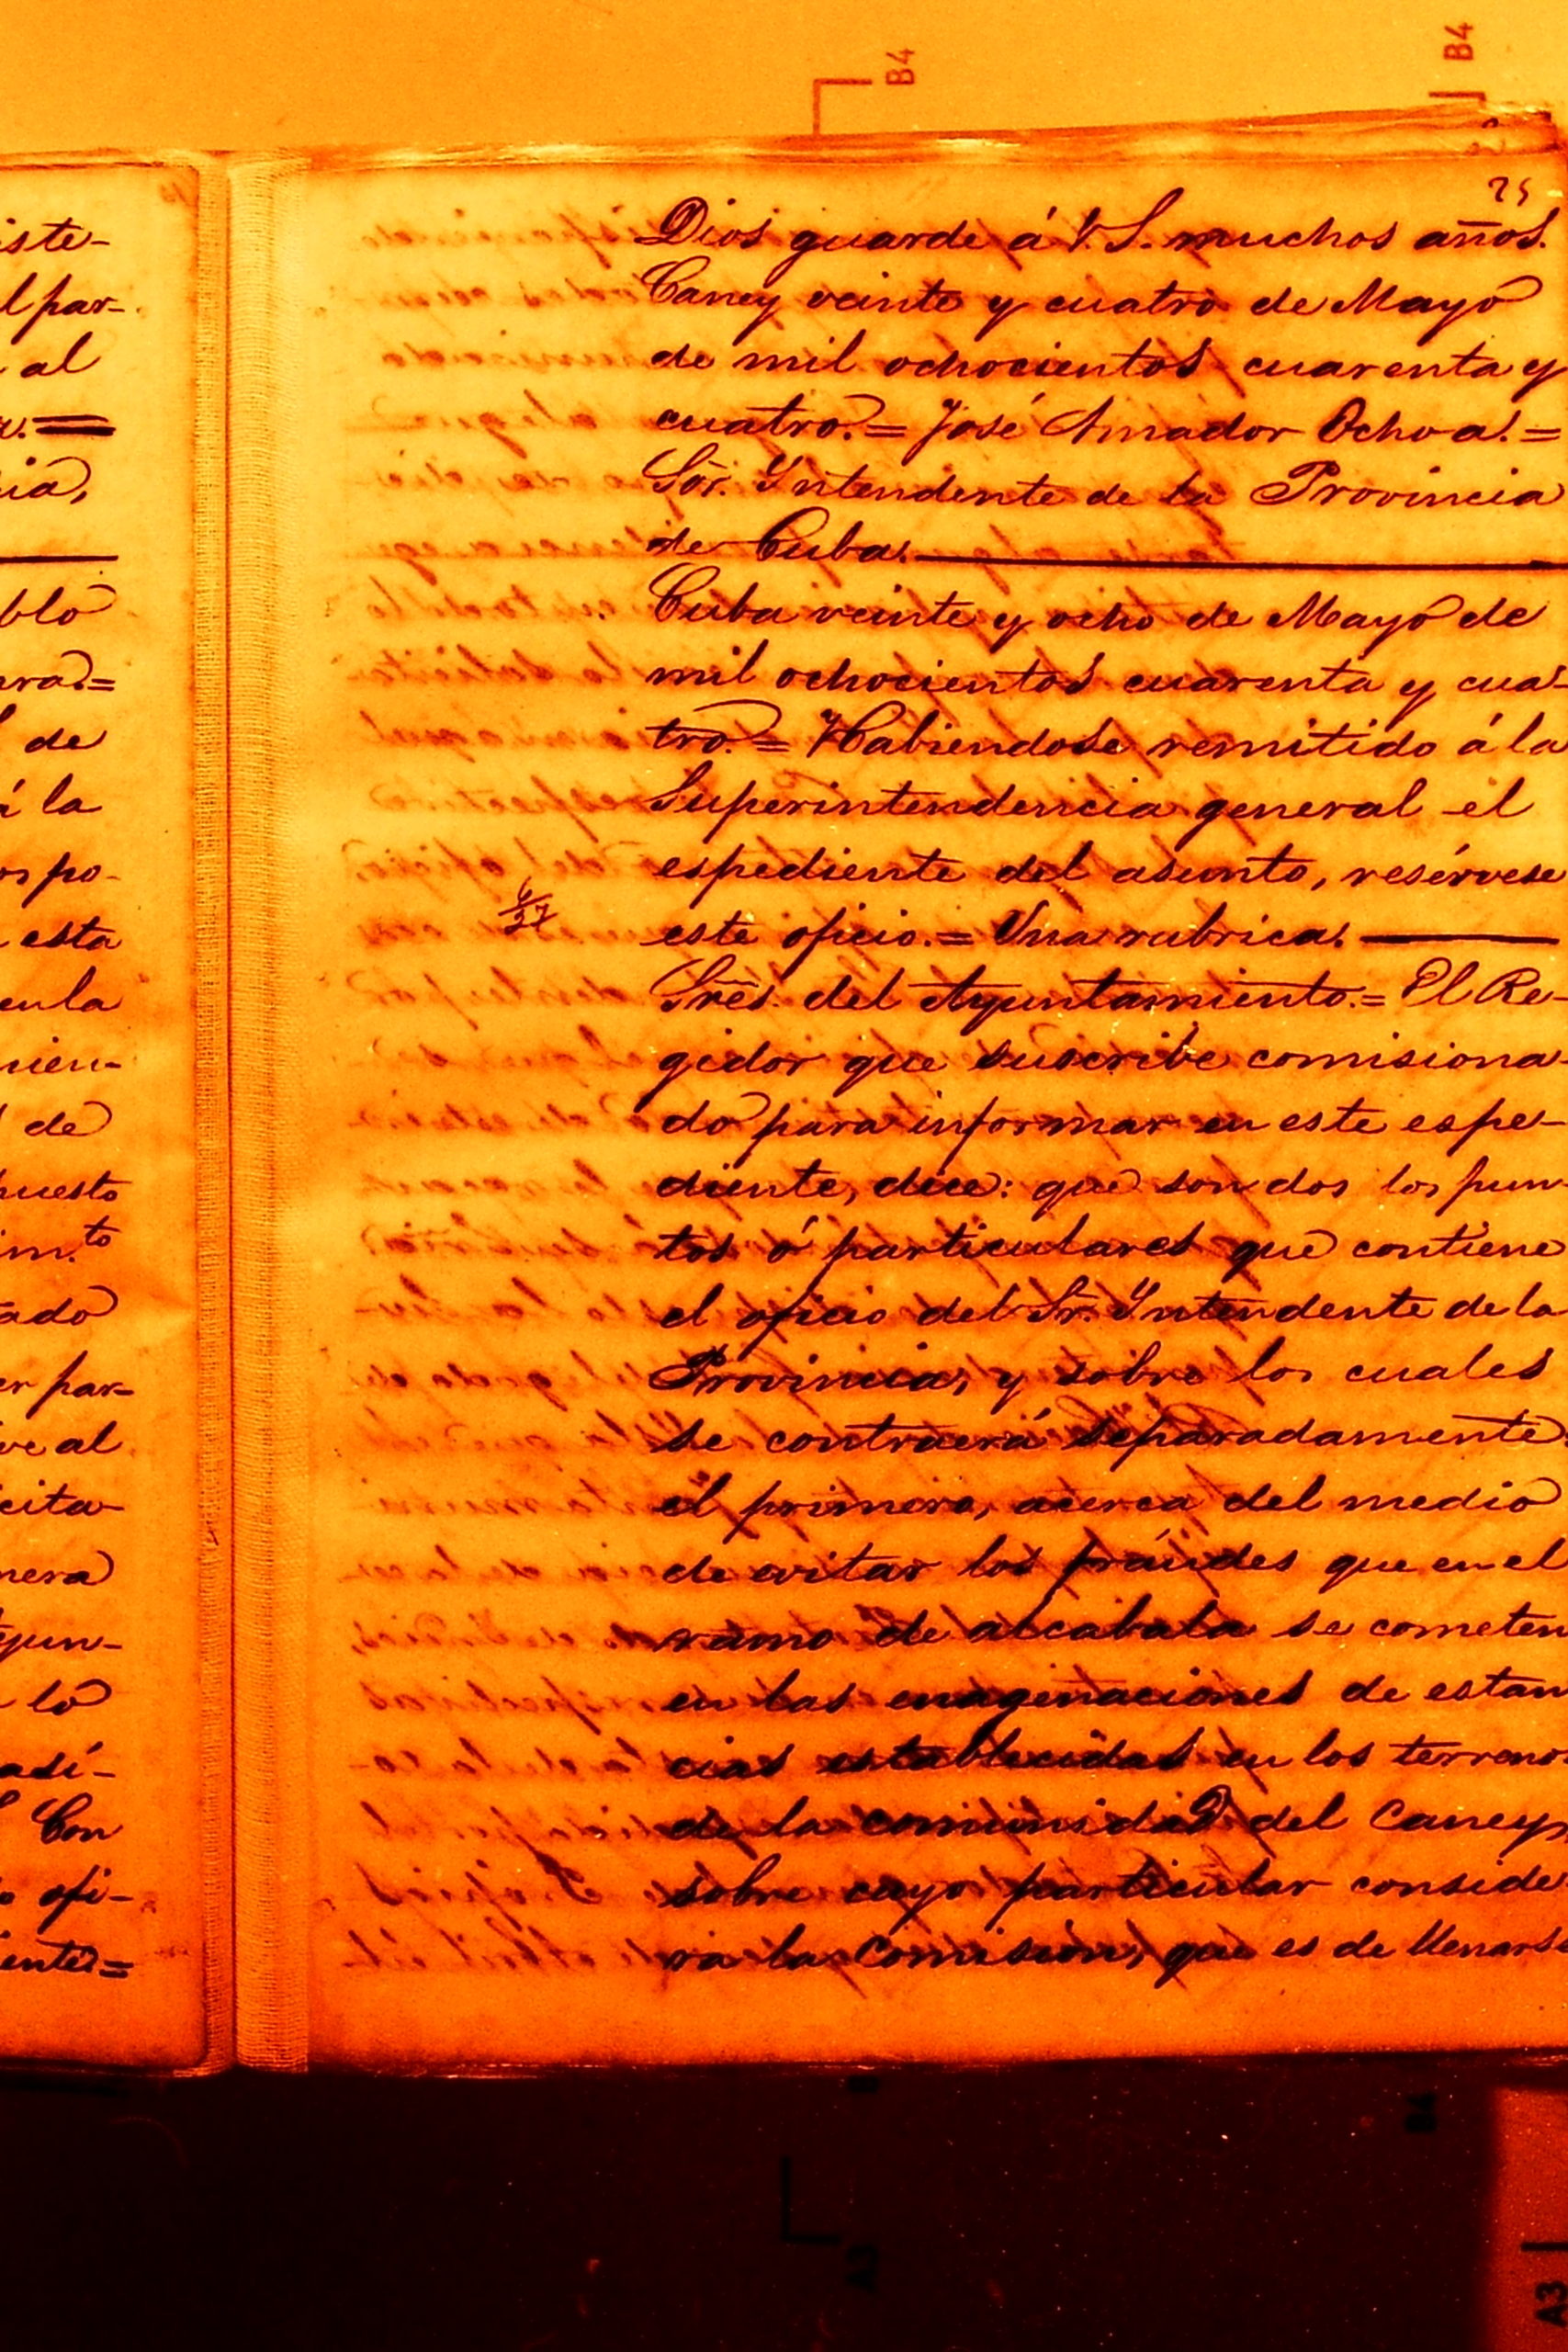 B4
B4
25
Dios guarde á V. S. muchos años.
Caney veinte y cuatro de Mayo
de mil ochocientos cuarenta y
cuatro. = José Amador Ochoa. =
Sõr. Yntendente de la Provincia
de Cuba.
Cuba veinte y ocho de Mayo de
mil ochocientos cuarenta y cua-
tro. = Habiendose remitido á la
Superintendencia general el
espediente del asunto, resérvese
este oficio. = Una rubrica.
6/27
Sres. del Ayuntamiento. = El Re-
gidor que suscribe comisiona-
do para informar en este espe-
diente, dice: que son dos los pun-
tos ó particulares que contiene
el oficio del Sr. Yntendente de la
Provincia, y sobre los cuales
se contraerá separadamente
el primero, acerca del medio
de evitar los fráudes que en el
ramo de alcabala se cometen
en las enagenaciones de estan
cias establecidas en los terrenos
de la comunidad del Caney,
sobre cuyo particular conside
ra la comision, que es de llenarse
iste-
l par-
al
cia,
blo
de
á la
os po-
esta
en la
mien-
de
puesto
im.to
ado
er par-
ve al
cita-
nera
yun-
lo
asi-
Con
ofi-
ente =
B4
A3
A3